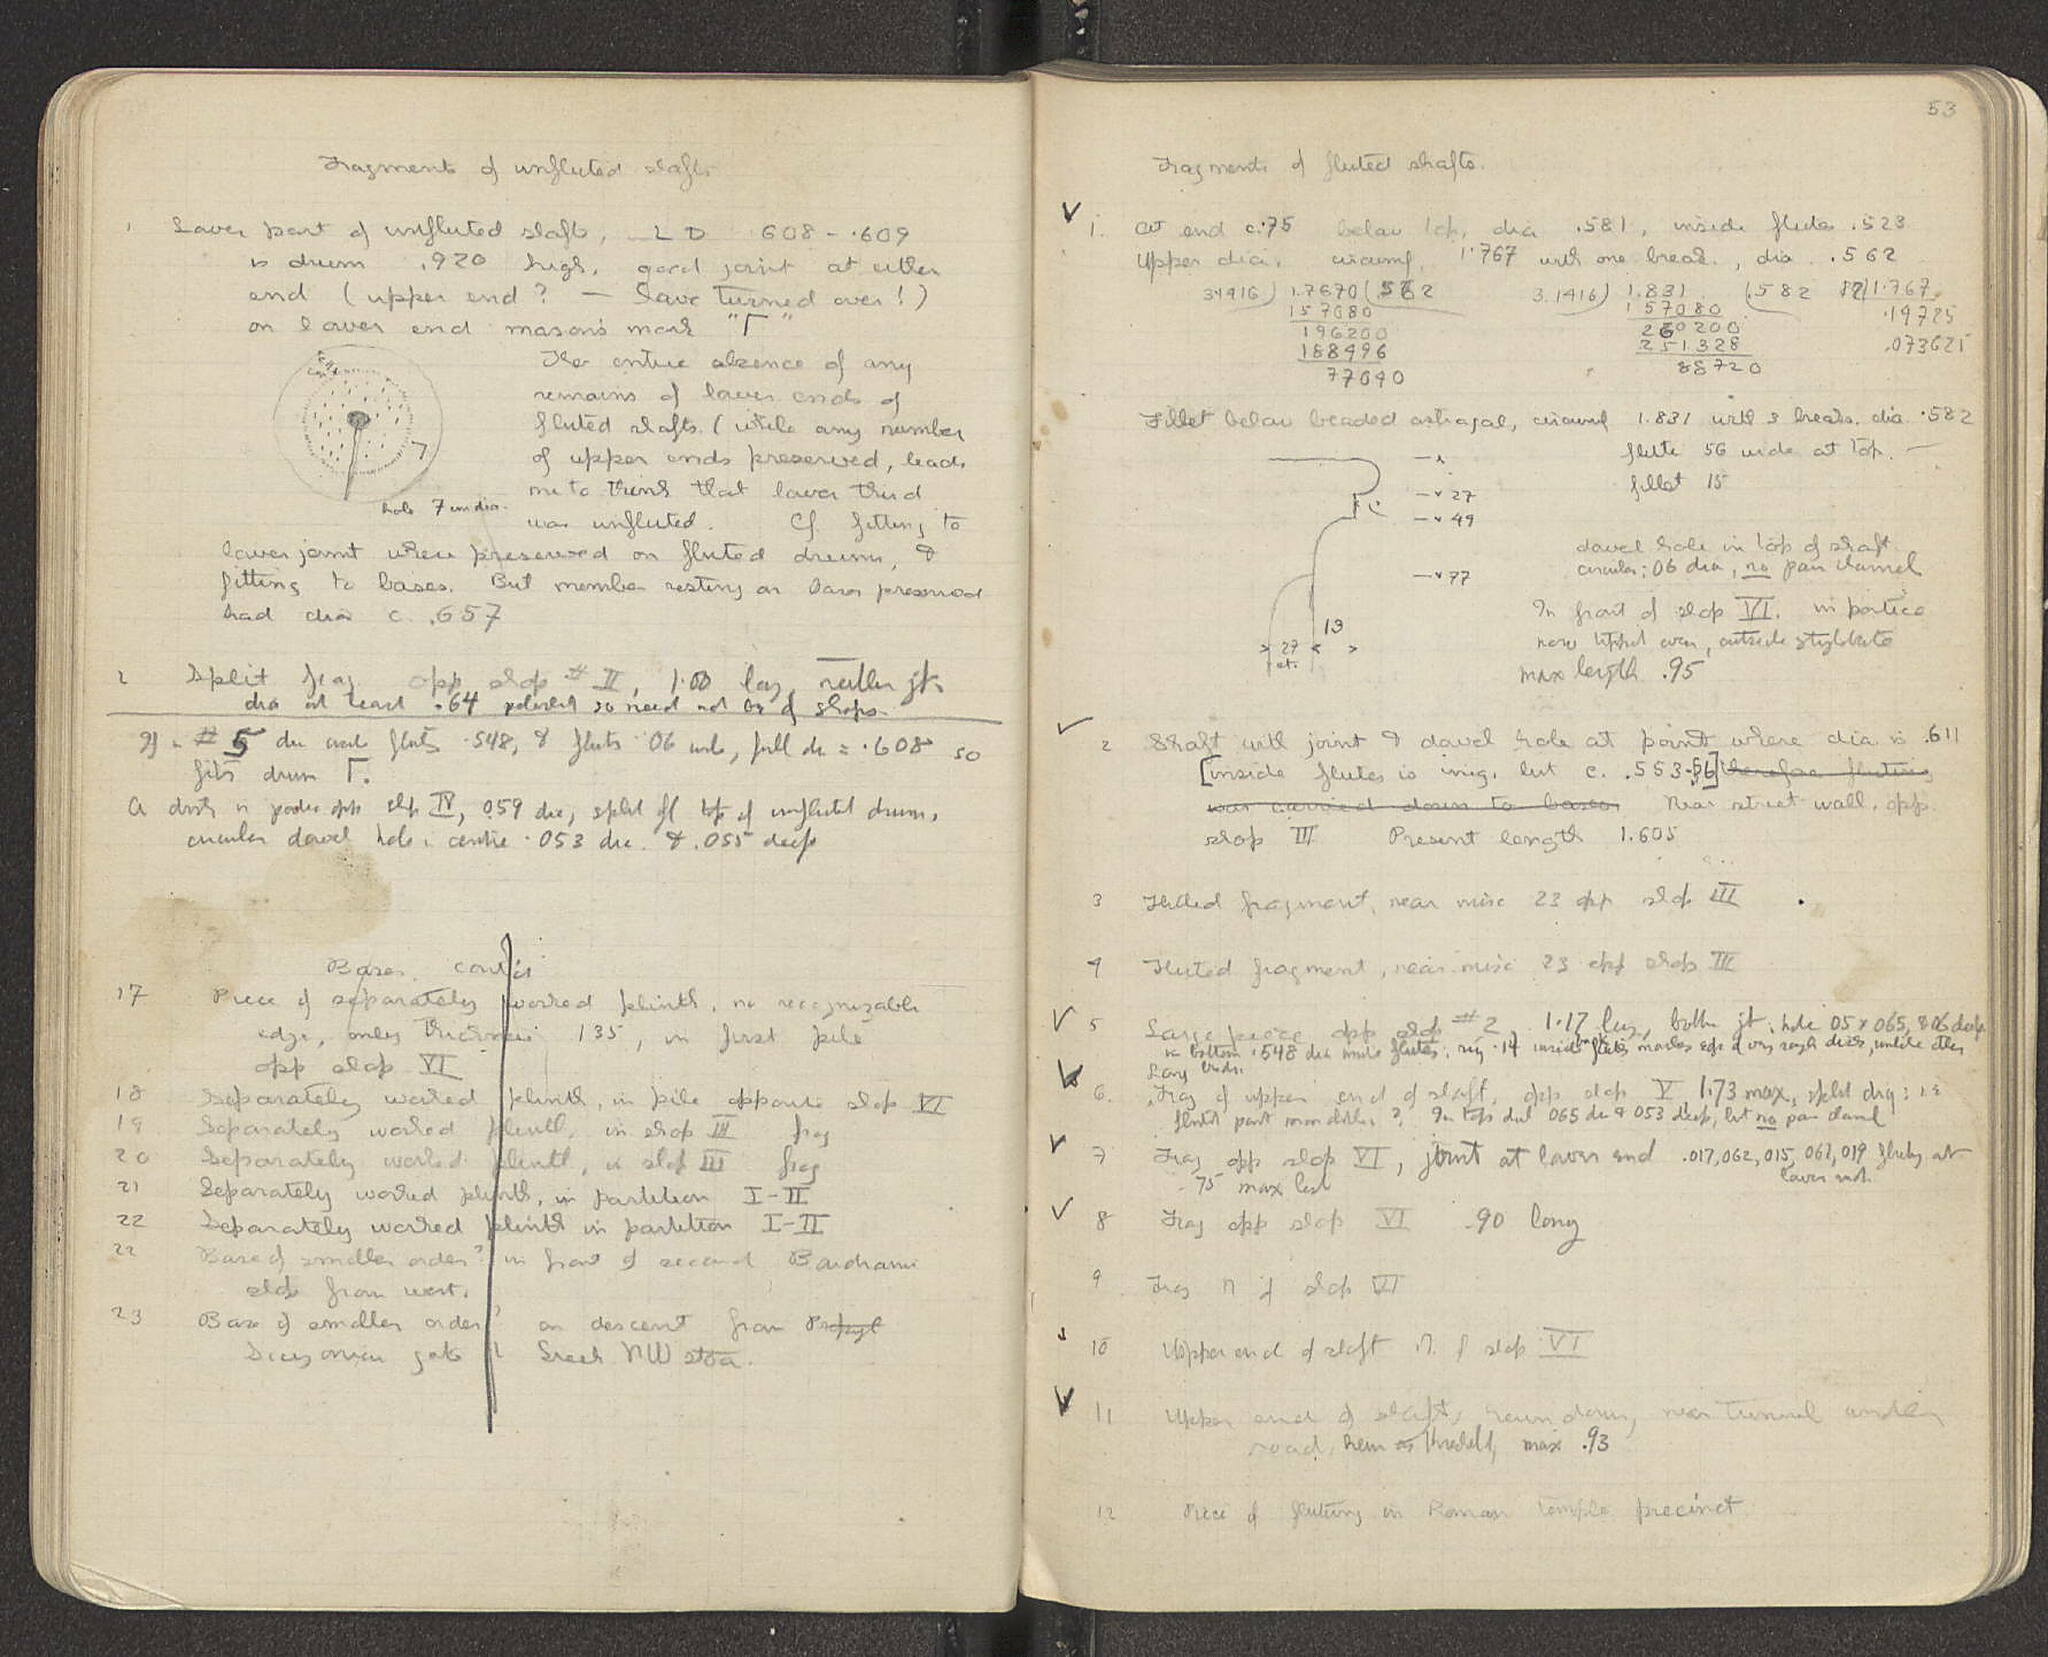 Fragments of unfluted shafts
1 Lower part of unfluted shaft, LD .608 - .609
is drum .920 high, good joint at either
end (upper end? — have turned over!)
on lower end mason's mark "Γ"
The entire absence of any
remains of lower ends of
fluted shafts (while any number
of upper ends preserved, leads
me to think that lower third
was unfluted. Cf. fitting to
hole 7 cm dia.
lower joint where preserved on fluted drums, &
fitting to bases. But member resting on base preserved
had dia c. .657
2 Split frag opp shop # II, 1.00 long, neither jt.
dia at least .64 so need not be of shops
If # 5 dia inside flutes .548, & flutes 06 wide, full dia = .608 so
fits drum Γ.
opp shop IV, 059 dia, split off top of unfluted drum,
circular dowel hole in centre .053 dia. & .055 deep
Bases. cont'd
17 Piece of separately worked plinth, no recognizable
edge, only thickness 135, in first pile
opp shop VI
18 Separately worked plinth, in pile opposite shop VI
19 Separately worked plinth, in shop III frag
20 Separately worked plinth, in shop III frag
21 Separately worked plinth, in partition I-II
22 Separately worked plinth in partition I-II
22 Base of smaller order? in front of second Boudroumi
shop from west.
23 Base of smaller order? on descent from Propyl
Sicyonian gate Greek NW stoa.
53
Fragments of fluted shafts.
1. At end c .75 below top, dia .581, inside flutes .523
Upper dia. circumf. 1.767 with one break, dia .562
3.1416) 1.7670 (.562 3.1416) 1.831 (.582 1.767
157080 157080 .19725
196200 260200 .073625
188496 251328
77040 88720
Fillet below beaded astragal, circumf 1.831 with 3 breaks. dia .582
flute 56 wide at top.
fillet 15
27
49
77
13
27
dowel hole in top of shaft
circular; 06 dia, no pour channel
In front of shop VI. in portico
now tipped over, outside stylobate
max length .95
2 Shaft with joint & dowel hole at point where dia is .611
[inside flutes is irreg. but c. .553-56] therefore fluting
was carried down to bases Near street wall, opp.
shop III Present length 1.605
3 Fluted fragment, near misc 23 opp shop III
4 Fluted fragment, near misc 23 opp shop III
5 Large piece opp shop # 2, 1.17 long, bottom jt. hole 05 x 065, & 06 deep
in bottom .548 dia inside flutes, ring .14 inside flutes marks edge of very rough disk, unlike other
Long
6. Frag of upper end of shaft, opp shop V 1.73 max, split
fluted part ? In top dowel 065 dia & 053 deep, but no pour channel
7 Frag opp shop VI, joint at lower end .017, 062, 015, 061, 019 fluting at
lower end.
.75 max
8 Frag opp shop VI .90 long
9 Frag N of shop VI
10 Upper end of shaft N. of shop VI
11 Upper end of shaft, hewn down, near tunnel under
road, hewn as threshold, max .93
12 Piece of fluting in Roman temple precinct